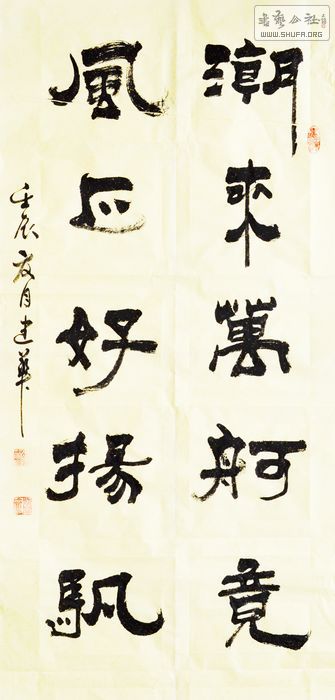 書藝公社
WWW.SHUFA.ORG
潮來萬舸竟
風正好揚䭵
壬辰夏月建華